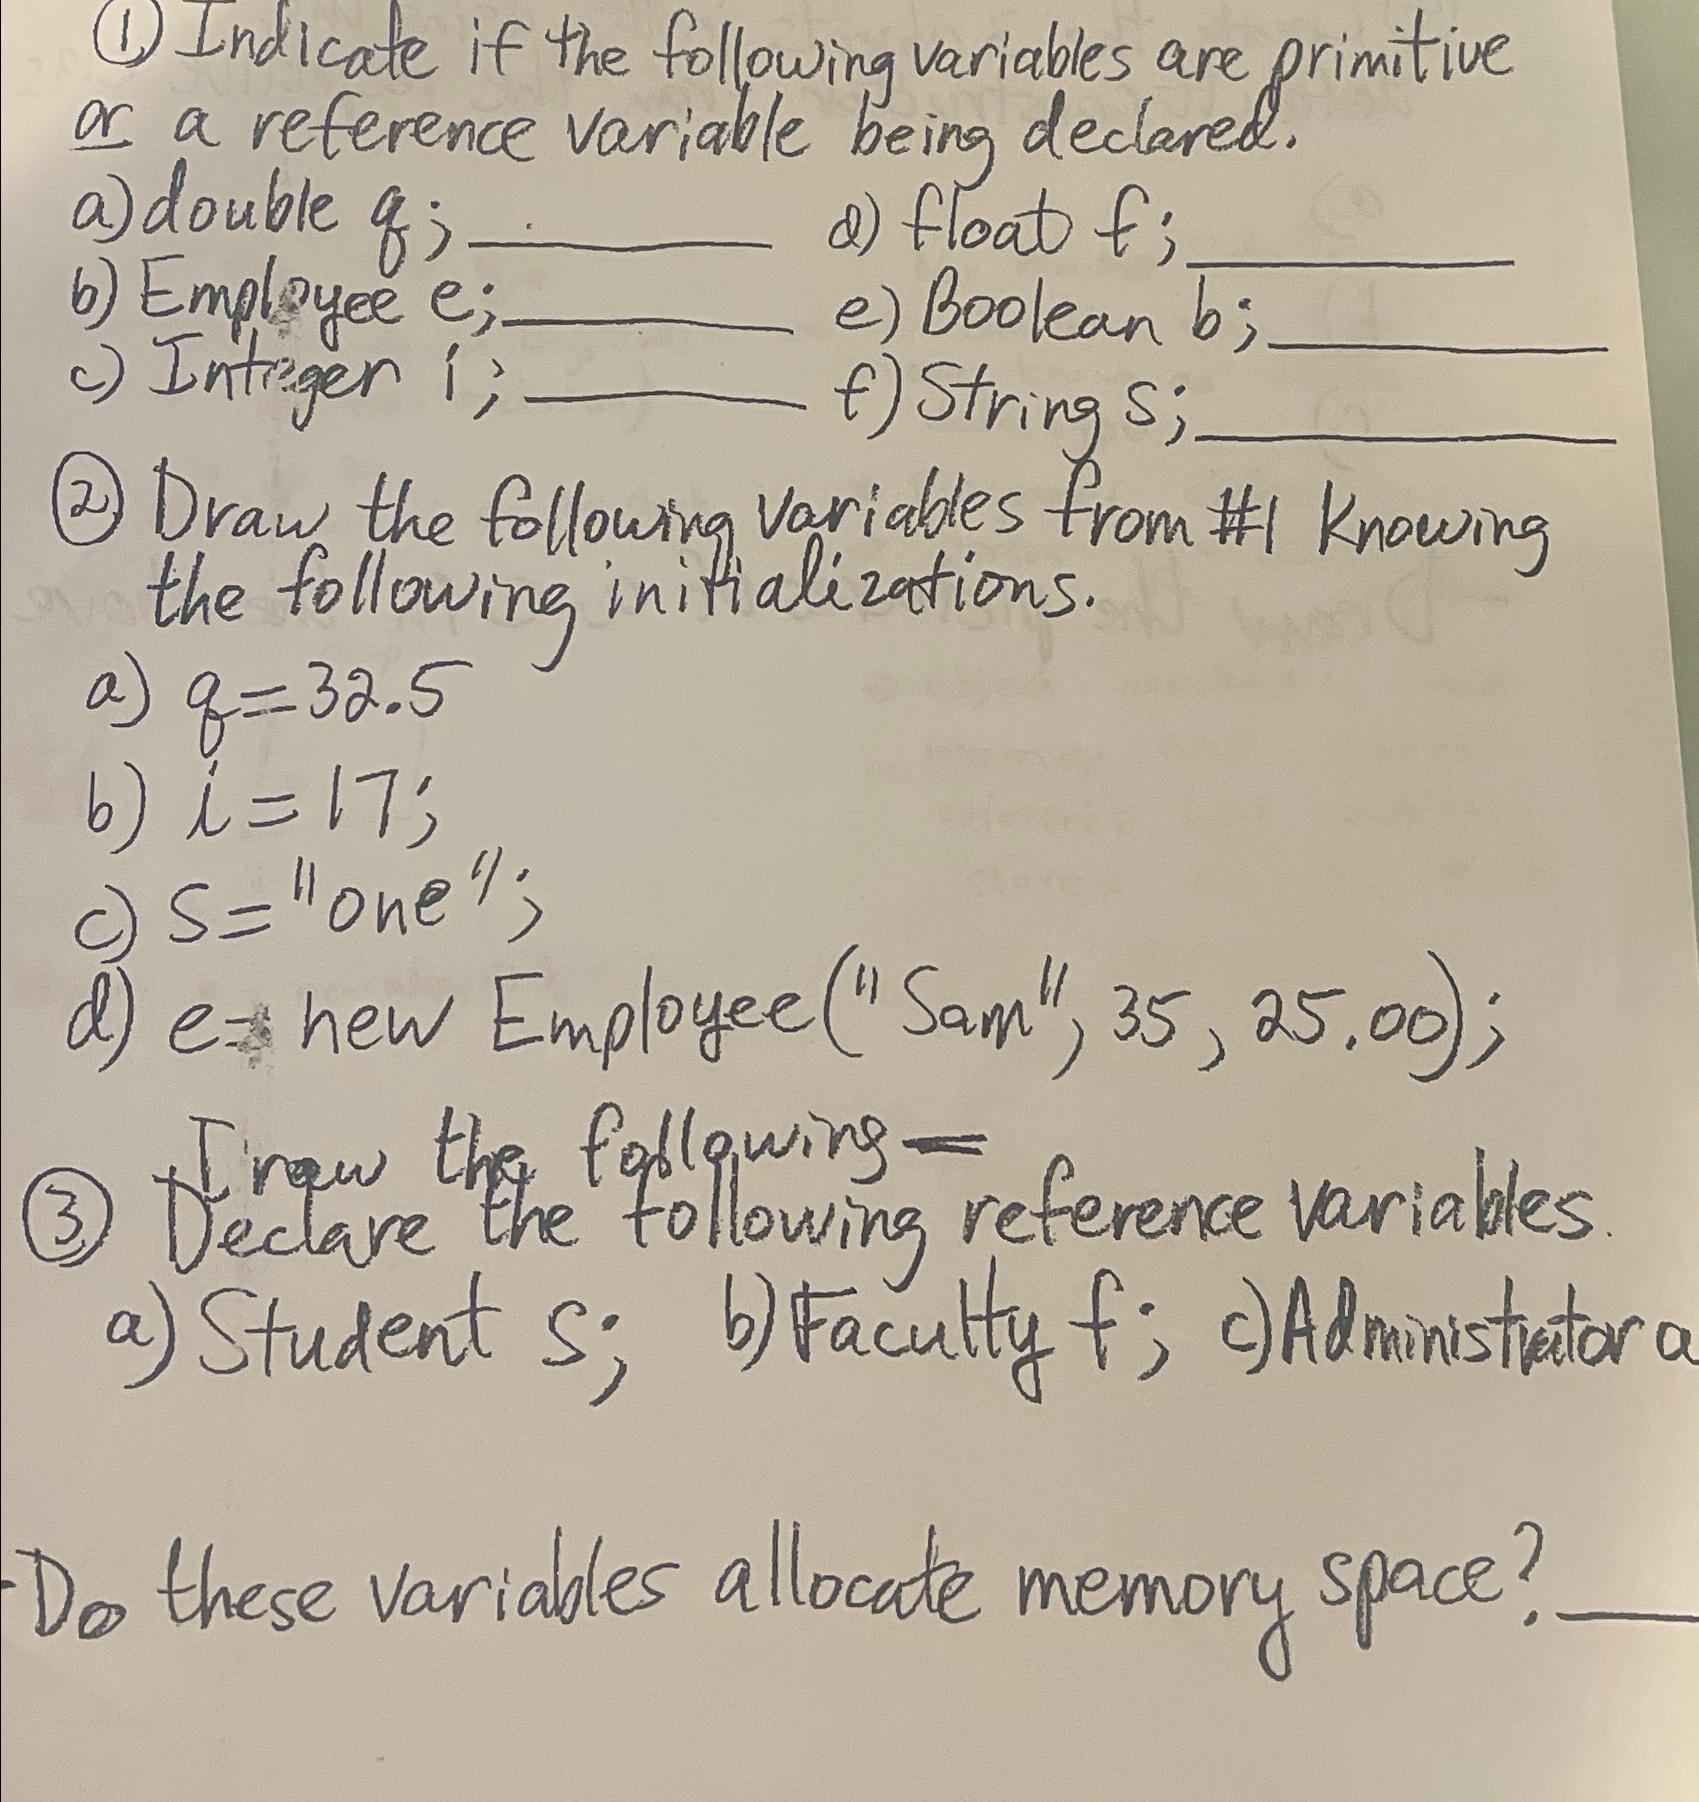 ① Indicate if the following variables are primitive
or a reference variable being declared.
a) double q; ________ d) float f; ________
b) Employee e; ________ e) Boolean b; ________
c) Integer i; ________ f) String s; ________
② Draw the following variables from #1 Knowing
the following initializations.
a) q=32.5
b) i=17;
c) s="one";
d) e= new Employee("Sam", 35, 25.00);
Draw the following =
③ Declare the following reference variables.
a) Student s; b) Faculty f; c) Administrator a
- Do these variables allocate memory space? ____